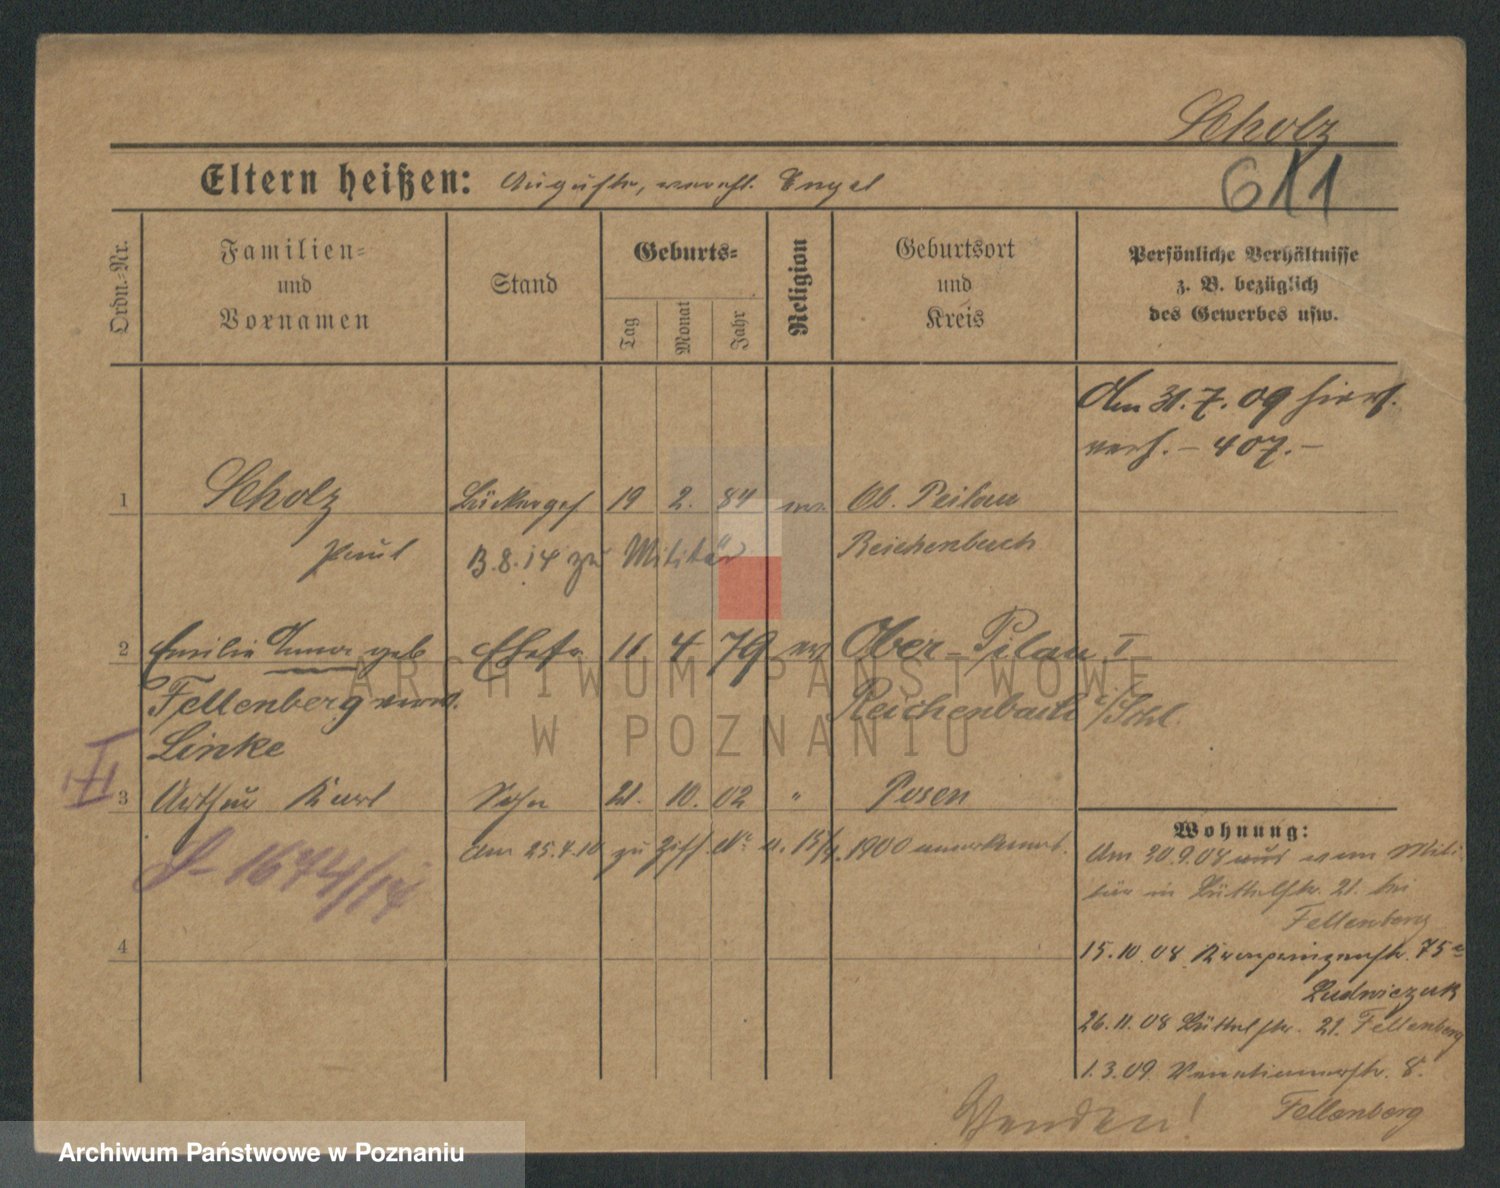 Scholz
611
Eltern heißen: Auguste, verehl. Engel
Ordn.-Nr.
Familien-
und
Vornamen
Stand
Geburts-
Tag
Monat
Jahr
Religion
Geburtsort
und
Kreis
Persönliche Verhältnisse
z. B. bezüglich
des Gewerbes usw.
Am 31.7.09 hier
verh. – 407. –
1 Scholz 19 2. 84 ev. Ob. Peilau
Paul 3.8.14 zu Militär Reichenbach
2 Emilie Anna geb Ehefr 11 4 79 ev Ober-Pilau I
Fellenberg verw. Reichenbach i/Schl.
Linke
3 Arthur Karl Sohn 21. 10. 02 " Posen
II
Am 25.4.10 zu Ziff. 1900 anerkannt.
1674/14
4
Wohnung:
Am 30.9.08 aus dem Mili
tär in 21. bei
Fellenberg
15.10.08 Kronprinzenstr. 75a
Ludwiczak
26.11.08 21. Fellenberg
1.3.09. Venetianerstr. 8.
Fellenberg
Wenden!
ARCHIWUM PAŃSTWOWE
W POZNANIU
Archiwum Państwowe w Poznaniu